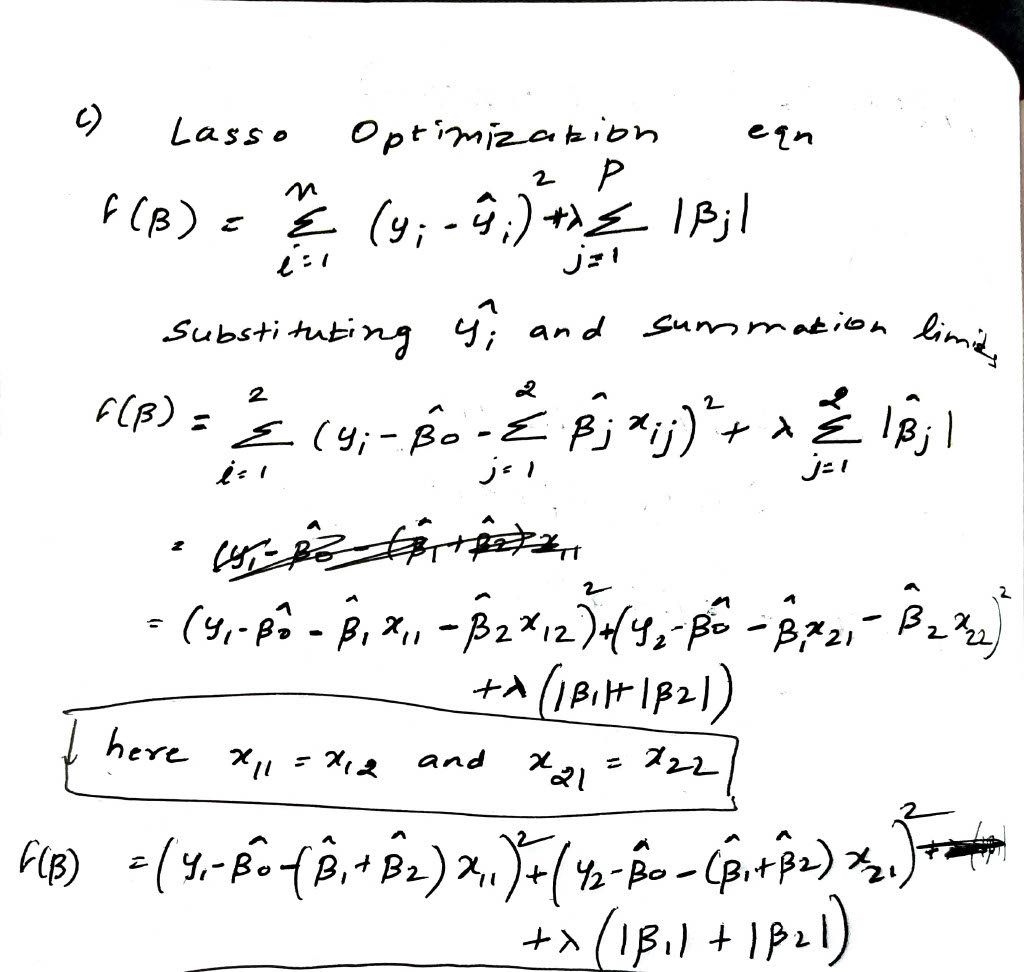 c) Lasso Optimization eqn
f(β) = Σ_{i=1}^{n} (y_i - ŷ_i)² + λ Σ_{j=1}^{p} |β_j|
Substituting ŷ_i and summation limits
f(β) = Σ_{i=1}^{2} (y_i - β̂_0 - Σ_{j=1}^{2} β̂_j x_{ij})² + λ Σ_{j=1}^{2} |β̂_j|
= (y_1 - β̂_0 - (β̂_1 + β̂_2) x_{11}
= (y_1 - β̂_0 - β̂_1 x_{11} - β̂_2 x_{12})² + (y_2 - β̂_0 - β̂_1 x_{21} - β̂_2 x_{22})²
+ λ (|β_1| + |β_2|)
here x_{11} = x_{12} and x_{21} = x_{22}
f(β) = (y_1 - β̂_0 - (β̂_1 + β̂_2) x_{11})² + (y_2 - β̂_0 - (β̂_1 + β̂_2) x_{21})²
+ λ (|β_1| + |β_2|)